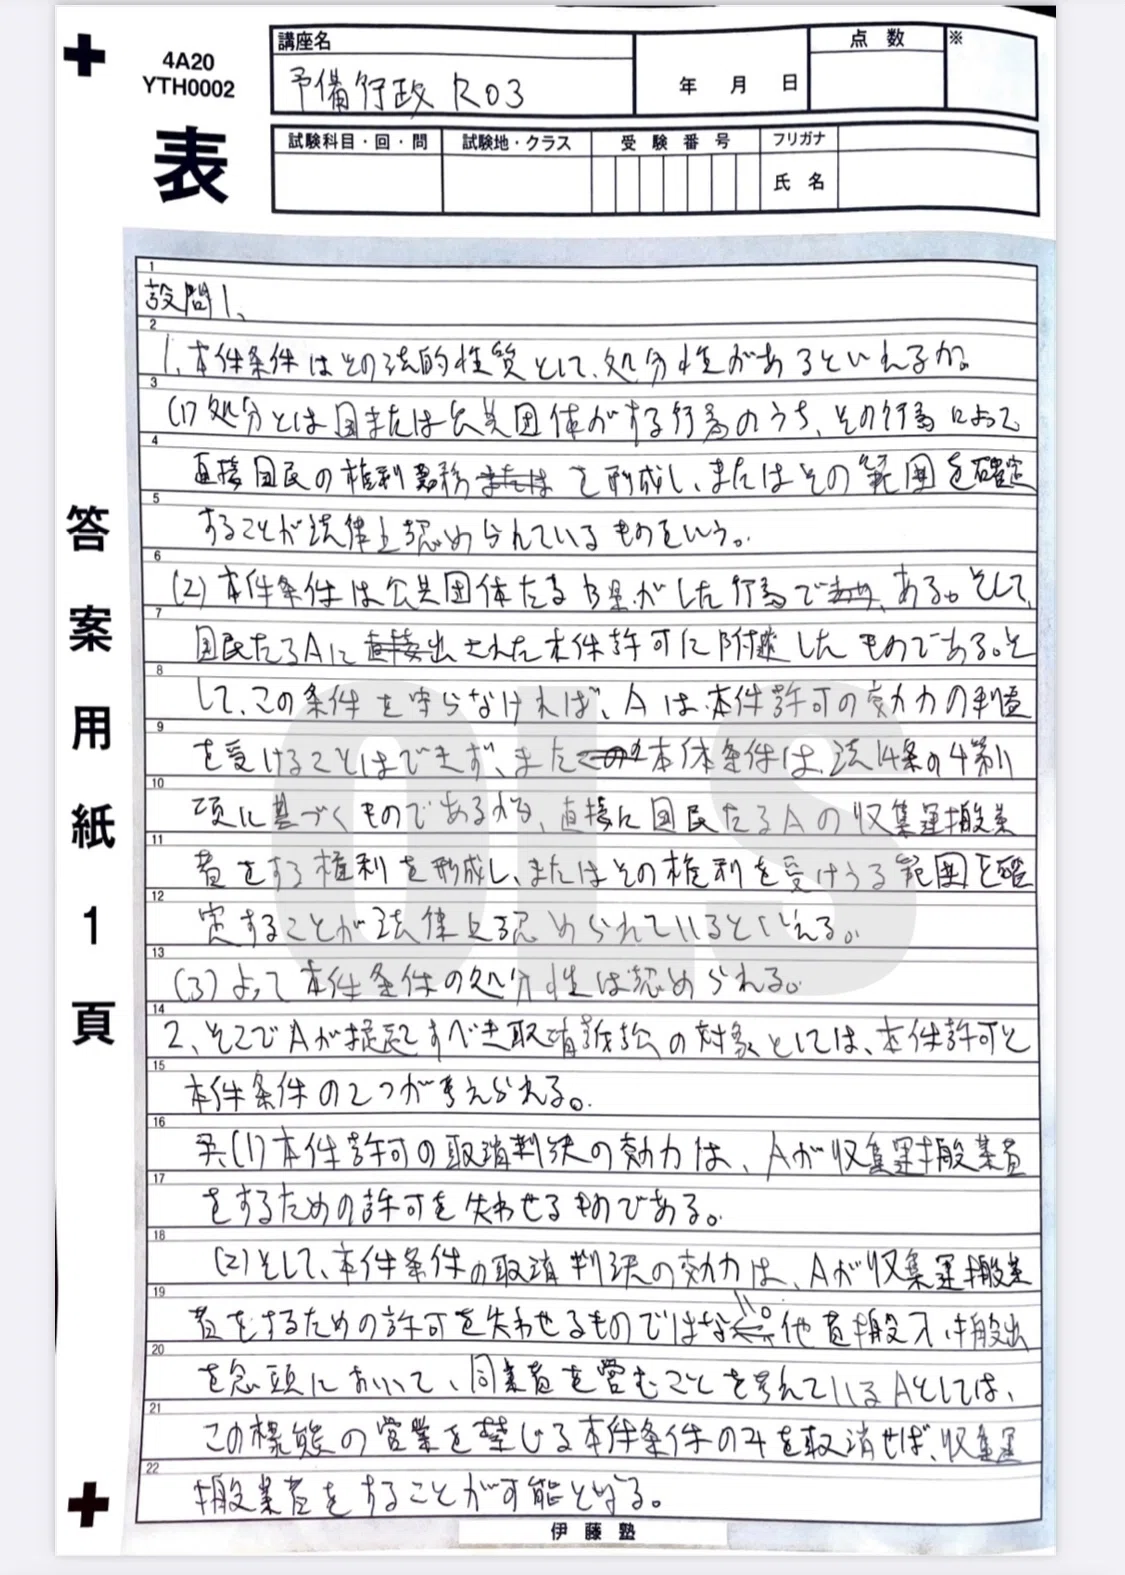 4A20
YTH0002
表
講座名
予備行政 R03
年 月 日
点 数
※
試験科目・回・問
試験地・クラス
受 験 番 号
フリガナ
氏 名
答案用紙1頁
1
設問1、
2
1、本件条件はその法的性質として、処分性があるといえるか。
3
(1) 処分とは国または公共団体がする行為のうち、その行為によって
4
直接国民の権利義務または を形成し、またはその範囲を確定
5
することが法律上認められているものをいう。
6
(2) 本件条件は公共団体たるB県がした行為で ある。そして、
7
国民たるAに直接出された本件許可に附款したものである。そ
8
して、この条件を守らなければ、Aは本件許可の効力の利益
9
を受けることはできず、また 本体条件は、法14条の4第11
10
項に基づくものであるから、直接に国民たるAの収集運搬業
11
者をする権利を形成し、またはその権利を受けうる範囲を確
12
定することが法律上認められているといえる。
13
(3) よって本件条件の処分性は認められる。
14
2、そこでAが提起すべき取消訴訟の対象としては、本件許可と
15
本件条件の2つが考えられる。
16
(1) 本件許可の取消判決の効力は、Aが収集運搬業者
17
をするための許可を失わせるものである。
18
(2) そして、本件条件の取消判決の効力は、Aが収集運搬業
19
者をするための許可を失わせるものではない。他者搬入・搬出
20
を念頭において、同業者を営むことを考えているAとしては、
21
この様態の営業を禁じる本件条件のみを取消せば、収集運
22
搬業者をすることが可能となる。
OLS
伊藤塾